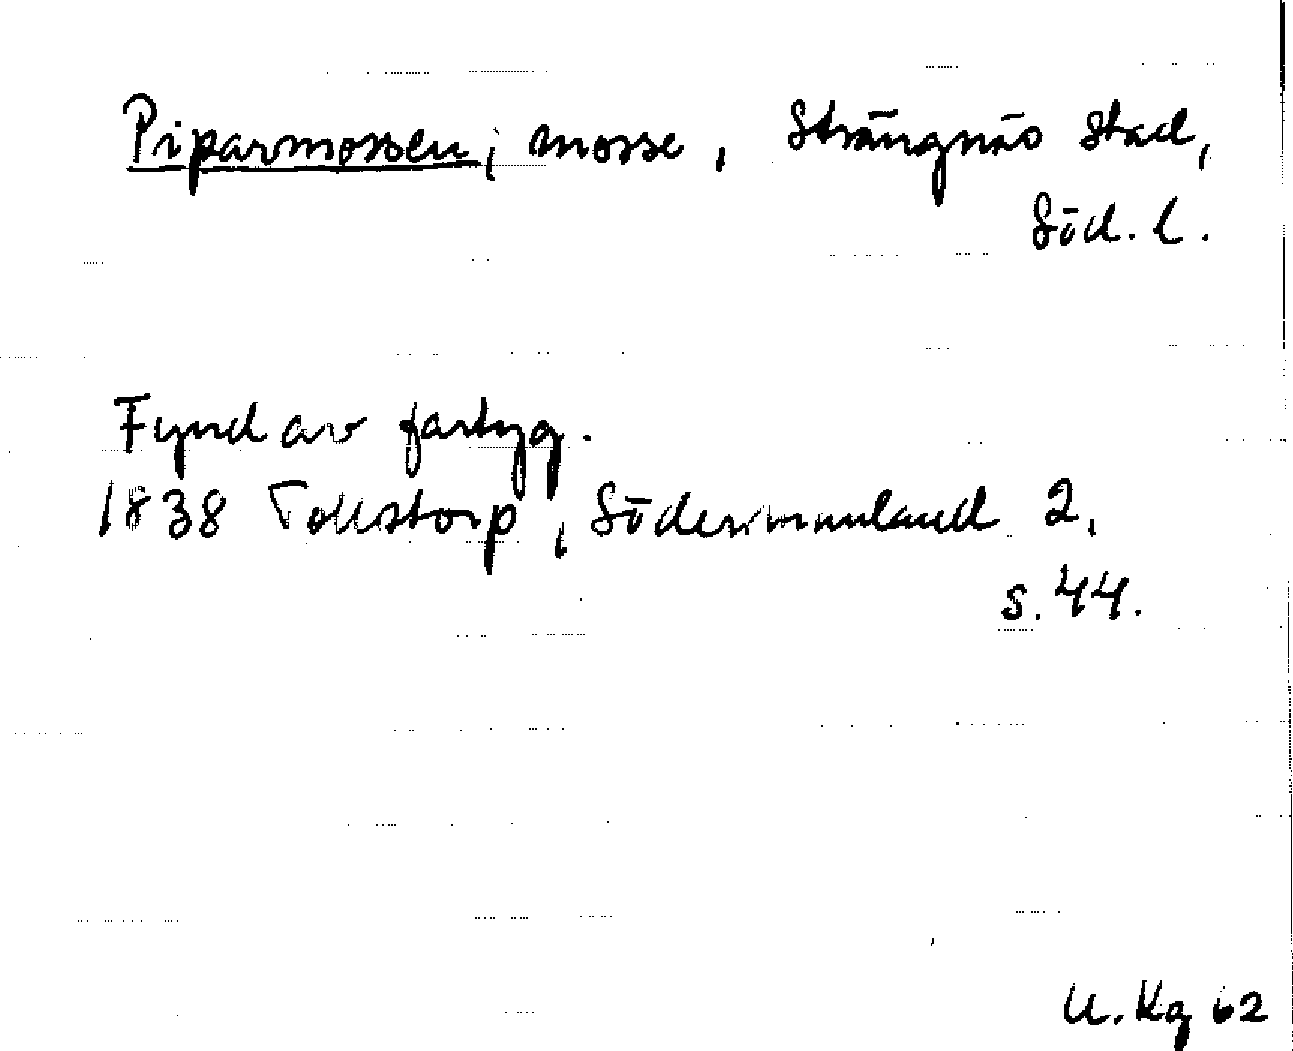 Piparmossen, mosse, Strängnäs stad,
Söd. l.
Fynd av fartyg.
1838 Tollstorp, Södermanland 2,
s. 44.
U. Kg 62